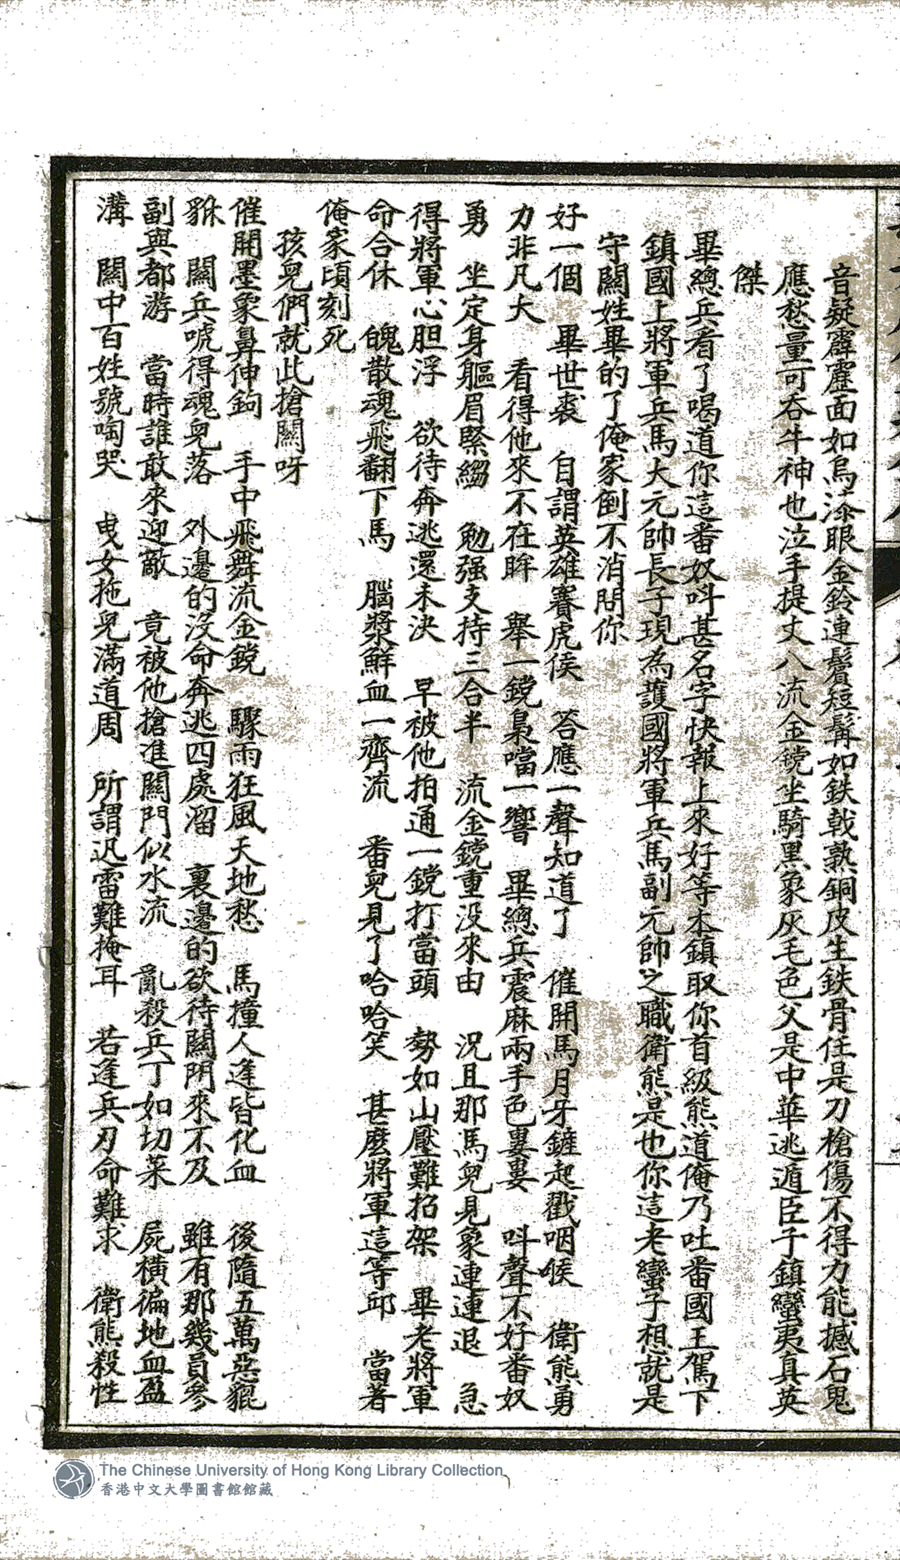 音疑霹靂面如烏漆眼金鈴連鬢短髯如鉄戟熟銅皮生鉄骨任是刀槍傷不得力能撼石鬼
應愁量可吞牛神也泣手提丈八流金鎲坐騎黑象灰毛色父是中華逃遁臣子鎮蠻夷真英
傑
畢總兵看了喝道你這番奴呌甚名字快報上來好等本鎮取你首級熊道俺乃吐番國王駕下
鎮國上將軍兵馬大元帥長子現為護國將軍兵馬副元帥之職衛熊是也你這老蠻子想就是
守關姓畢的了俺家倒不消問你
好一個 畢世裘 自謂英雄賽虎侯 答應一聲知道了 催開馬月牙鏟起戳咽喉 衛熊勇
力非凡大 看得他來不在眸 舉一鎲梟噹一響 畢總兵震麻兩手色婁婁 呌聲不好番奴
勇 坐定身軀眉緊縐 勉强支持三合半 流金鎲重沒來由 況且那馬兒見象連連退 急
得將軍心胆浮 欲待奔逃還未決 早被他拍通一鎲打當頭 勢如山壓難招架 畢老將軍
命合休 魄散魂飛翻下馬 腦漿鮮血一齊流 番兒見了哈哈笑 甚麽將軍這等邱 當著
俺家頃刻死
孩兒們就此搶關呀
催開墨象鼻伸鉤 手中飛舞流金鎲 驟雨狂風天地愁 馬撞人逢皆化血 後隨五萬惡貔
貅 關兵唬得魂兒落 外邊的沒命奔逃四處溜 裏邊的欲待關門來不及 雖有那幾員參
副與都游 當時誰敢來迎敵 竟被他搶進關門似水流 亂殺兵丁如切菜 屍橫徧地血盈
溝 關中百姓號啕哭 曳女拖兒滿道周 所謂迅雷難掩耳 若逢兵刃命難求 衛熊殺性
The Chinese University of Hong Kong Library Collection
香港中文大學圖書館館藏